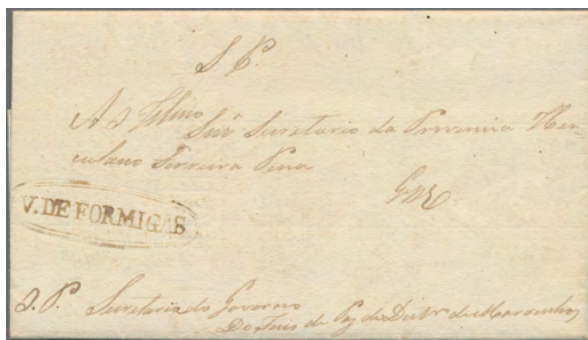 S P.
Snr Secretario da Provincia Her-
culano Ferreira Pena
V. DE FORMIGAS
S. P. Secretaria do Governo
Do Juis de Paz do Distr.